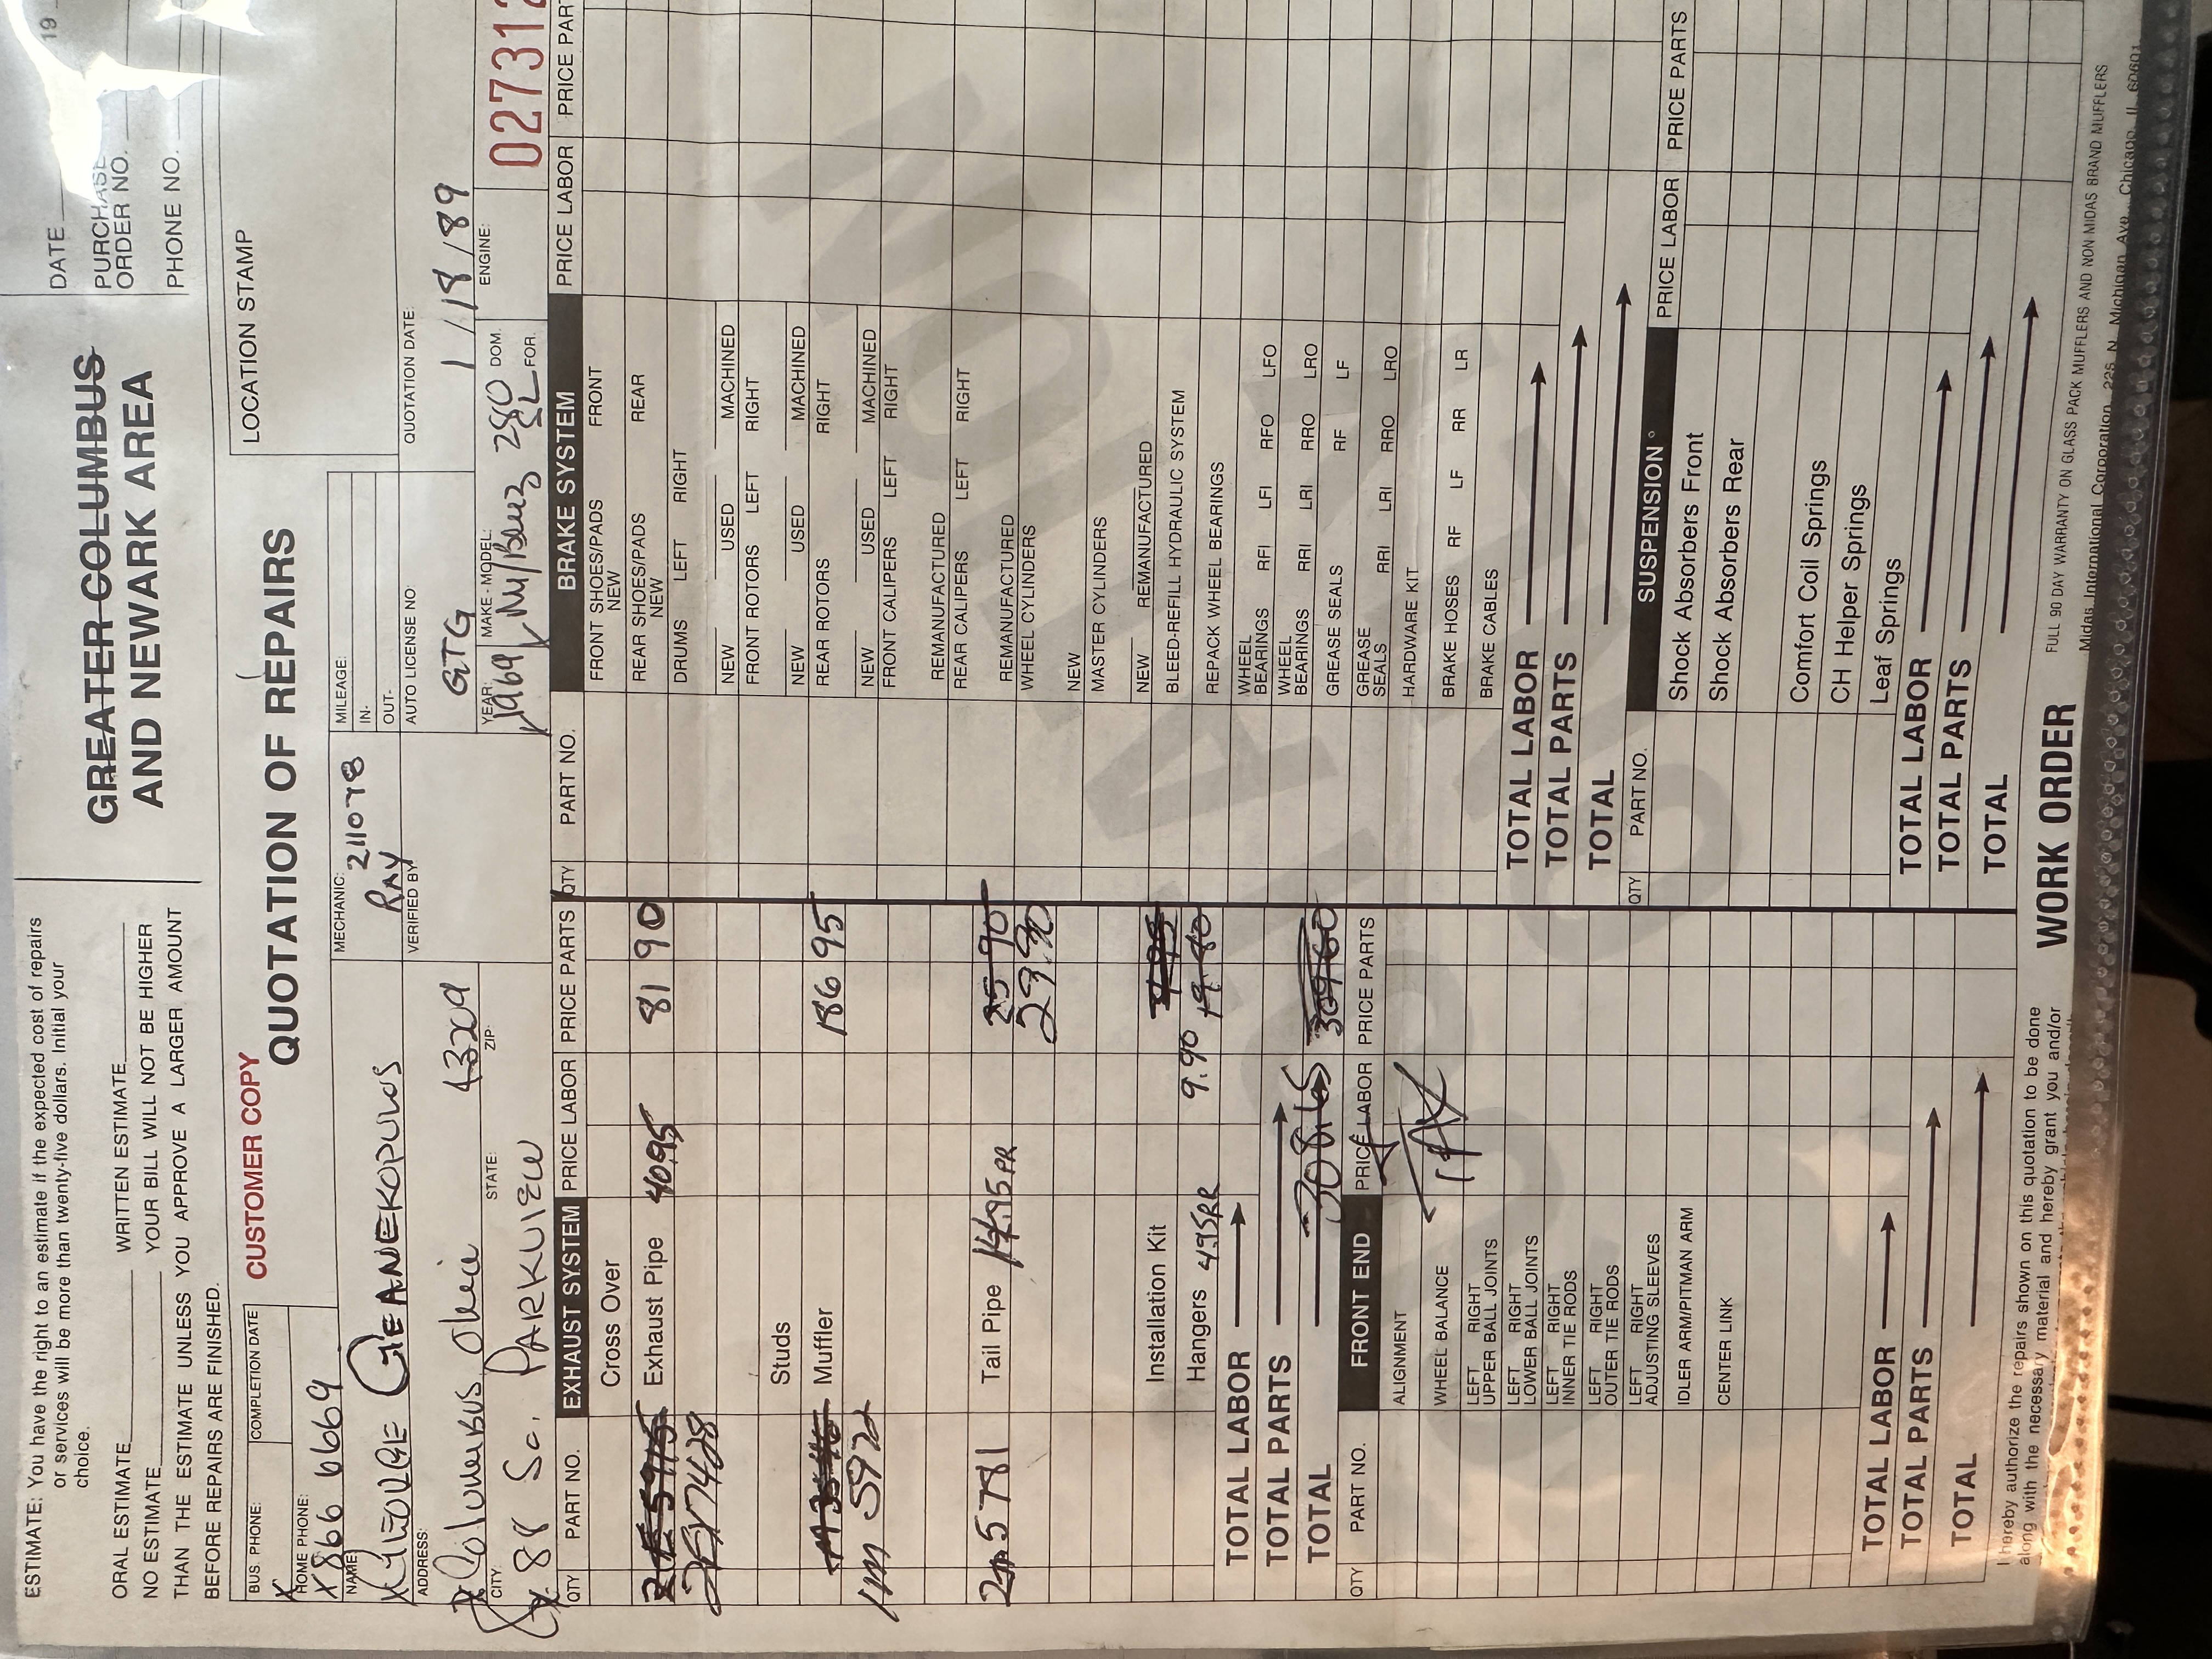 ESTIMATE: You have the right to an estimate if the expected cost of repairs
or services will be more than twenty-five dollars. Initial your
choice.
ORAL ESTIMATE WRITTEN ESTIMATE
NO ESTIMATE YOUR BILL WILL NOT BE HIGHER
THAN THE ESTIMATE UNLESS YOU APPROVE A LARGER AMOUNT
BEFORE REPAIRS ARE FINISHED.
GREATER COLUMBUS
AND NEWARK AREA
DATE 19
PURCHASE
ORDER NO.
PHONE NO.
CUSTOMER COPY
QUOTATION OF REPAIRS
LOCATION STAMP
BUS. PHONE: COMPLETION DATE
X
HOME PHONE:
X 866 6669
NAME:
X GEORGE GEANEKOPULOS
ADDRESS:
X Columbus Ohio 43209
CITY: STATE: ZIP:
X 88 So. PARKVIEW
MECHANIC: 211078
RAY
VERIFIED BY
MILEAGE:
IN-
OUT-
AUTO LICENSE NO.
GTG
QUOTATION DATE:
1/18/89
YEAR: MAKE - MODEL: DOM. FOR. ENGINE:
1969 280
SL
027312
QTY PART NO. EXHAUST SYSTEM PRICE LABOR PRICE PARTS
Cross Over
Exhaust Pipe 4095 81 90
Studs
Muffler 186 95
Tail Pipe 14.95 PR 25 90
2m5781 29.90
Installation Kit
Hangers 4.95 PR 9.90 19.80
TOTAL LABOR
TOTAL PARTS
TOTAL 308.65
QTY PART NO. FRONT END PRICE LABOR PRICE PARTS
ALIGNMENT
TAX
WHEEL BALANCE
LEFT RIGHT
UPPER BALL JOINTS
LEFT RIGHT
LOWER BALL JOINTS
LEFT RIGHT
INNER TIE RODS
LEFT RIGHT
OUTER TIE RODS
LEFT RIGHT
ADJUSTING SLEEVES
IDLER ARM/PITMAN ARM
CENTER LINK
TOTAL LABOR
TOTAL PARTS
TOTAL
QTY PART NO. BRAKE SYSTEM PRICE LABOR PRICE PART
FRONT SHOES/PADS FRONT
NEW
REAR SHOES/PADS REAR
NEW
DRUMS LEFT RIGHT
NEW USED MACHINED
FRONT ROTORS LEFT RIGHT
NEW USED MACHINED
REAR ROTORS RIGHT
NEW USED MACHINED
FRONT CALIPERS LEFT RIGHT
REMANUFACTURED
REAR CALIPERS LEFT RIGHT
REMANUFACTURED
WHEEL CYLINDERS
NEW
MASTER CYLINDERS
NEW REMANUFACTURED
BLEED-REFILL HYDRAULIC SYSTEM
REPACK WHEEL BEARINGS
WHEEL
BEARINGS RFI LFI RFO LFO
WHEEL
BEARINGS RRI LRI RRO LRO
GREASE SEALS RF LF
GREASE
SEALS RRI LRI RRO LRO
HARDWARE KIT
BRAKE HOSES RF LF RR LR
BRAKE CABLES
TOTAL LABOR
TOTAL PARTS
TOTAL
QTY PART NO. SUSPENSION PRICE LABOR PRICE PARTS
Shock Absorbers Front
Shock Absorbers Rear
Comfort Coil Springs
CH Helper Springs
Leaf Springs
TOTAL LABOR
TOTAL PARTS
TOTAL
I hereby authorize the repairs shown on this quotation to be done
along with the necessary material and hereby grant you and/or
WORK ORDER
FULL 90 DAY WARRANTY ON GLASS PACK MUFFLERS AND NON MIDAS BRAND MUFFLERS
Midas International Corporation, 225 N. Michigan Ave., Chicago, IL 60601
QUOTATION
ONLY